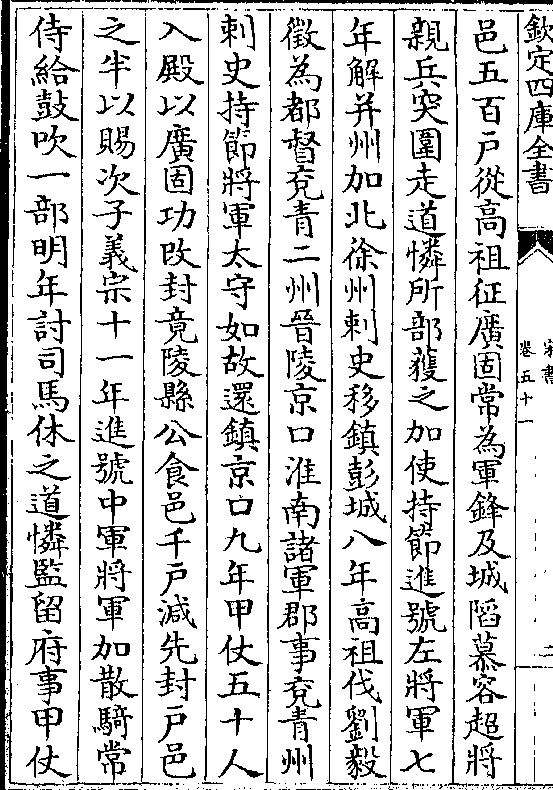 欽定四庫全書
宋書
卷五十一
二
邑五百戸從高祖征廣固常為軍鋒及城陷慕容超將
親兵突圍走道憐所部獲之加使持節進號左將軍七
年解并州加北徐州刺史移鎮彭城八年高祖伐劉毅
徵為都督兖青二州晉陵京口淮南諸軍郡事兖青州
刺史持節將軍太守如故還鎮京口九年甲仗五十人
入殿以廣固功改封竟陵縣公食邑千戸減先封戸邑
之半以賜次子義宗十一年進號中軍將軍加散騎常
侍給鼓吹一部明年討司馬休之道憐監留府事甲仗